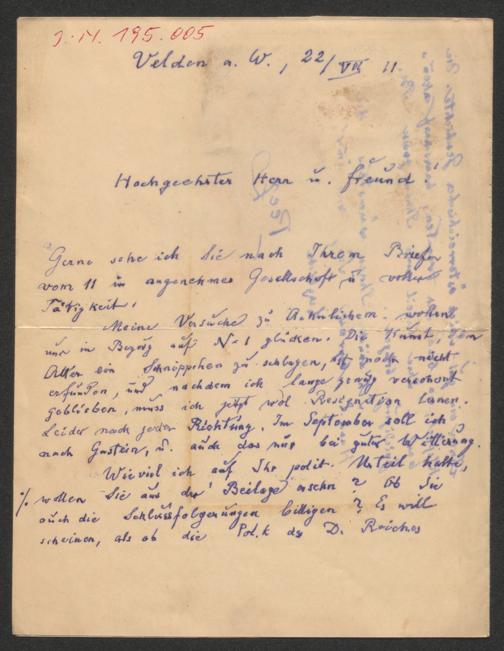 I.N. 195.005
Velden a. W., 22/VII 11.
Hochgeehrter Herr u. Freund!
Gerne sehe ich Sie nach Ihrem Briefe
vom 11 in angenehmer Gesellschaft u. voller
Tätigkeit!
Meine Versuche zu Ähnlichem wollen
nur in Bezug auf No 1 glücken. Die Kunst, dem
Alter ein Schnippchen zu schlagen, ist noch nicht
erfunden, und nachdem ich lange genug verschont
geblieben, muss ich jetzt wol Resignation lernen.
Leider nach jeder Richtung. Im September soll ich
nach Gastein, u. auch das nur bei guter Witterung.
Wieviel ich auf Ihr polit. Urteil halte,
./. wollen Sie aus der Beilage ersehn? Ob Sie
auch die Schlussfolgerungen billigen? Es will
scheinen, als ob die Polit. des D. Reiches